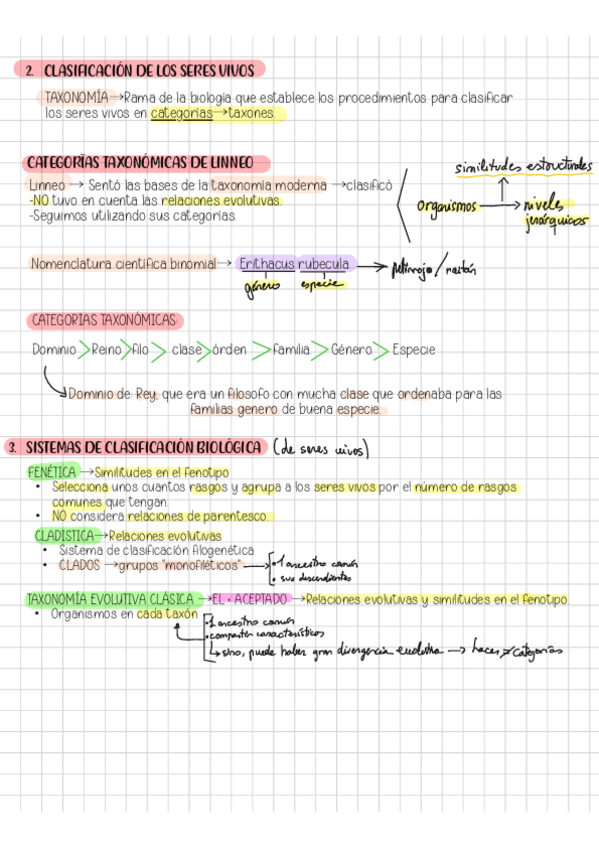 2. CLASIFICACIÓN DE LOS SERES VIVOS
TAXONOMÍA→Rama de la biologia que establece los procedimientos para clasificar
los seres vivos en categorías→taxones.
CATEGORÍAS TAXONÓMICAS DE LINNEO
similitudes estructurales
Linneo → Sentó las bases de la taxonomia moderna →clasificó
organismos → niveles
jerárquicos
-NO tuvo en cuenta las relaciones evolutivas.
-Seguimos utilizando sus categorías.
Nomenclatura científica binomial→ Erithacus rubecula → petirrojo / raitán
género especie
CATEGORIAS TAXONÓMICAS
Dominio > Reino > filo > clase > órden > familia > Género > Especie
Dominio de Rey, que era un filosofo con mucha clase que ordenaba para las
familias genero de buena especie.
3. SISTEMAS DE CLASIFICACIÓN BIOLÓGICA (de seres vivos)
FENÉTICA →Similitudes en el fenotipo
• Selecciona unos cuantos rasgos y agrupa a los seres vivos por el número de rasgos
comunes que tengan.
• NO considera relaciones de parentesco.
CLADISTICA→Relaciones evolutivas
• Sistema de clasificación filogenética
• CLADOS →grupos "monofiléticos" → • 1 ancestro común
• sus descendientes
TAXONOMÍA EVOLUTIVA CLÁSICA →EL + ACEPTADO →Relaciones evolutivas y similitudes en el fenotipo
• Organismos en cada taxón • 1 ancestro común
• comparten características
↳ sino, puede haber gran divergencia evolutiva → hacer ≠ categorías